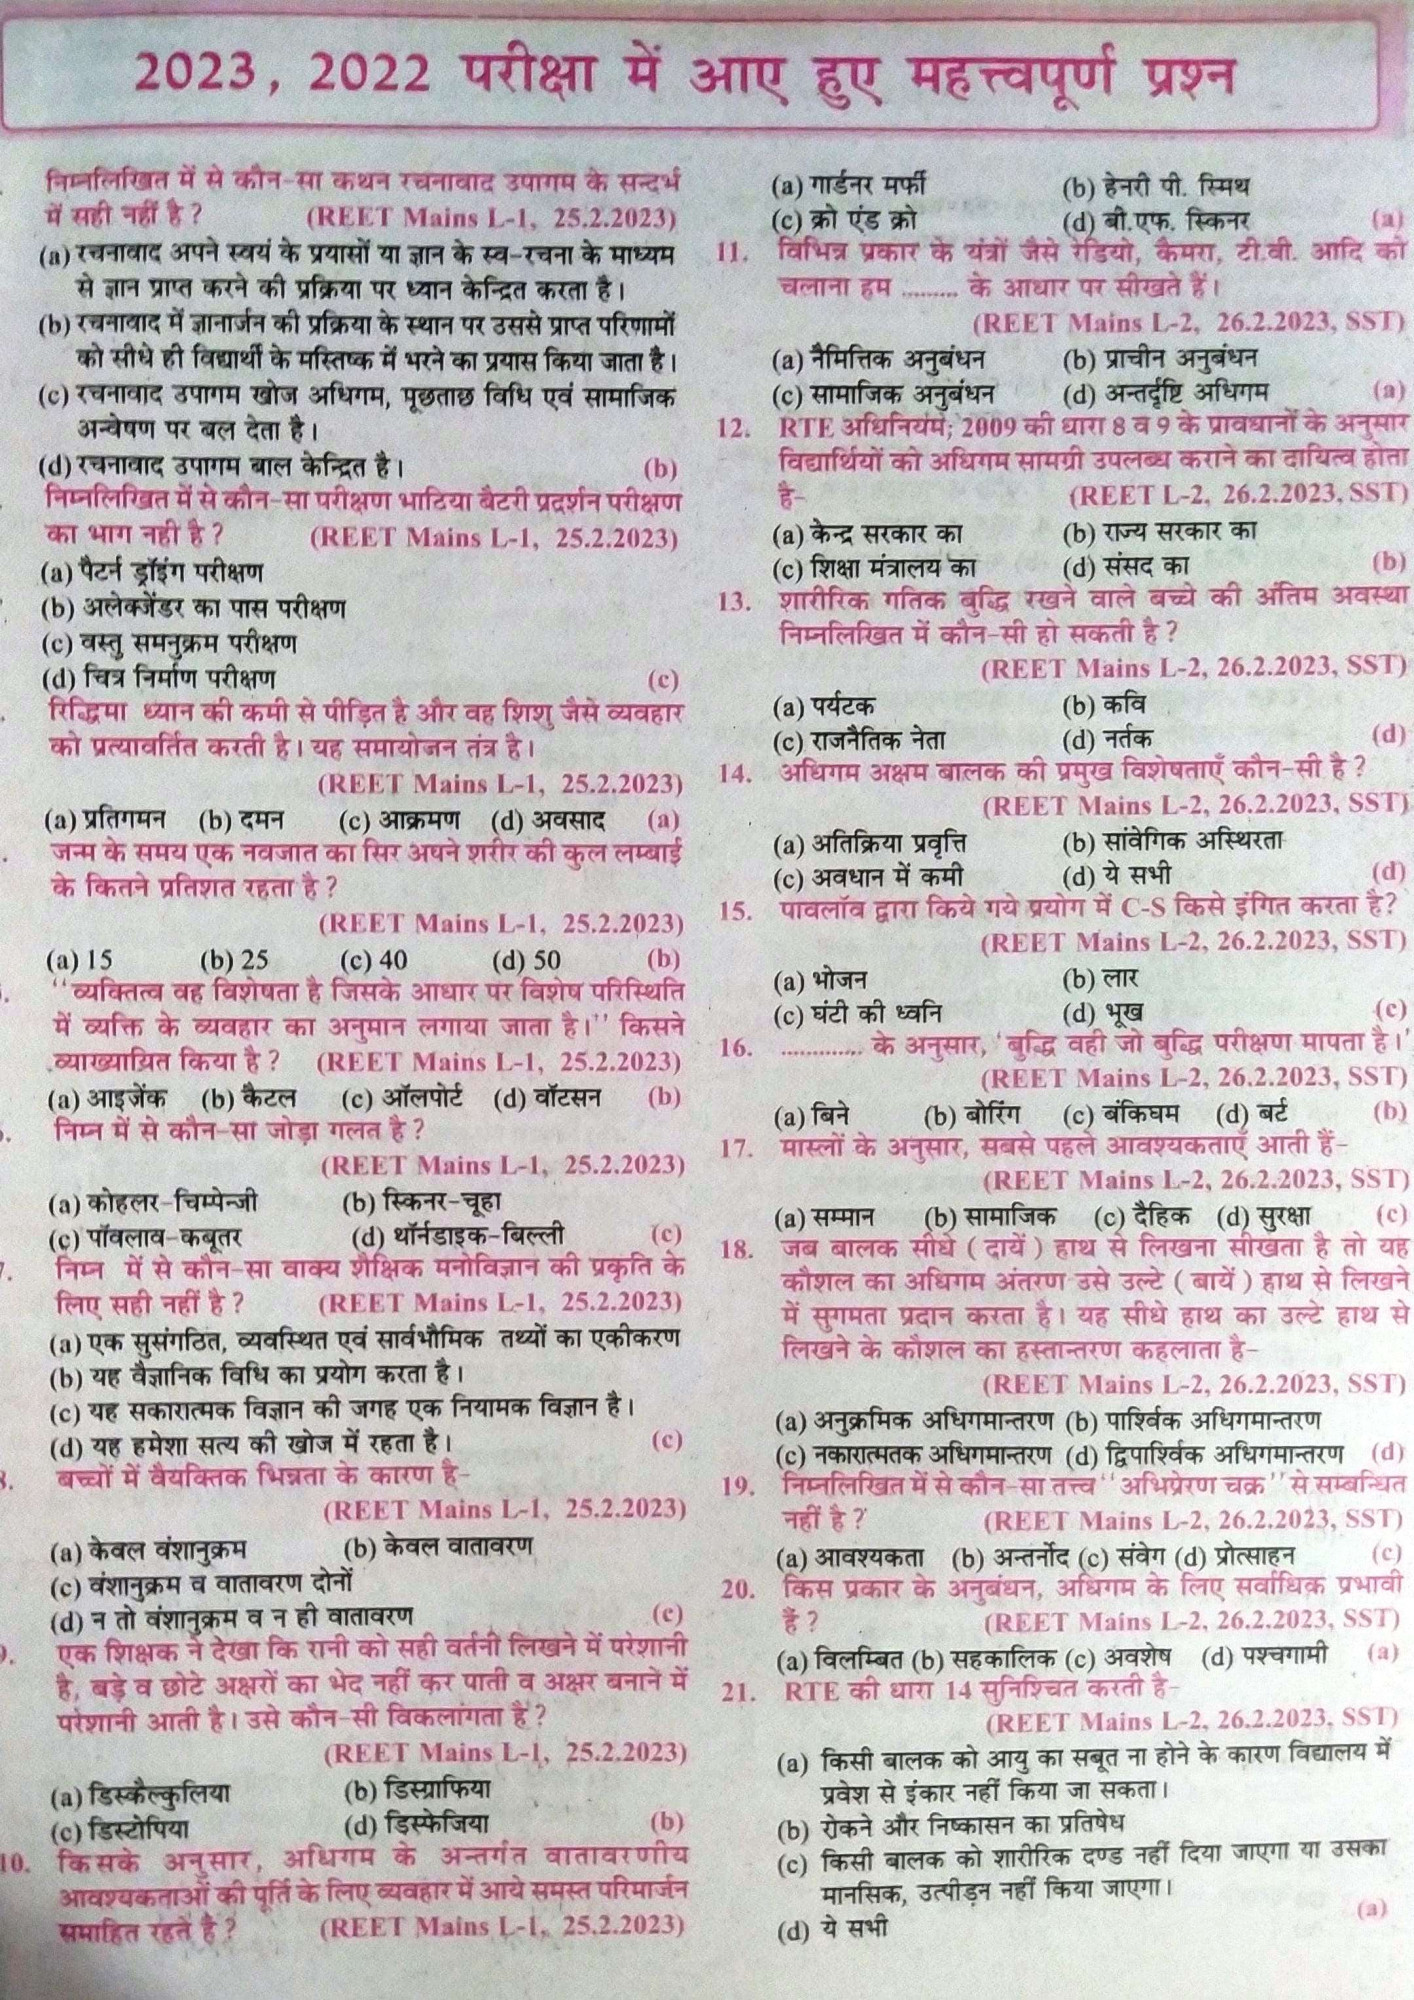 2023, 2022 परीक्षा में आए हुए महत्त्वपूर्ण प्रश्न
निम्नलिखित में से कौन-सा कथन रचनावाद उपागम के सन्दर्भ
में सही नहीं है ? (REET Mains L-1, 25.2.2023)
(a) रचनावाद अपने स्वयं के प्रयासों या ज्ञान के स्व-रचना के माध्यम
से ज्ञान प्राप्त करने की प्रक्रिया पर ध्यान केन्द्रित करता है।
(b) रचनावाद में ज्ञानार्जन की प्रक्रिया के स्थान पर उससे प्राप्त परिणामों
को सीधे ही विद्यार्थी के मस्तिष्क में भरने का प्रयास किया जाता है।
(c) रचनावाद उपागम खोज अधिगम, पूछताछ विधि एवं सामाजिक
अन्वेषण पर बल देता है।
(d) रचनावाद उपागम बाल केन्द्रित है। (b)
निम्नलिखित में से कौन-सा परीक्षण भाटिया बैटरी प्रदर्शन परीक्षण
का भाग नहीं है ? (REET Mains L-1, 25.2.2023)
(a) पैटर्न ड्रॉइंग परीक्षण
(b) अलेक्जेंडर का पास परीक्षण
(c) वस्तु समनुक्रम परीक्षण
(d) चित्र निर्माण परीक्षण (c)
रिद्धिमा ध्यान की कमी से पीड़ित है और वह शिशु जैसे व्यवहार
को प्रत्यावर्तित करती है। यह समायोजन तंत्र है।
(REET Mains L-1, 25.2.2023)
(a) प्रतिगमन (b) दमन (c) आक्रमण (d) अवसाद (a)
जन्म के समय एक नवजात का सिर अपने शरीर की कुल लम्बाई
के कितने प्रतिशत रहता है ?
(REET Mains L-1, 25.2.2023)
(a) 15 (b) 25 (c) 40 (d) 50 (b)
‘‘व्यक्तित्व वह विशेषता है जिसके आधार पर विशेष परिस्थिति
में व्यक्ति के व्यवहार का अनुमान लगाया जाता है।’’ किसने
व्याख्यायित किया है ? (REET Mains L-1, 25.2.2023)
(a) आइजेंक (b) कैटल (c) ऑलपोर्ट (d) वॉटसन (b)
निम्न में से कौन-सा जोड़ा गलत है ?
(REET Mains L-1, 25.2.2023)
(a) कोहलर-चिम्पेन्जी (b) स्किनर-चूहा
(c) पॉवलाव-कबूतर (d) थॉर्नडाइक-बिल्ली (c)
निम्न में से कौन-सा वाक्य शैक्षिक मनोविज्ञान की प्रकृति के
लिए सही नहीं है ? (REET Mains L-1, 25.2.2023)
(a) एक सुसंगठित, व्यवस्थित एवं सार्वभौमिक तथ्यों का एकीकरण
(b) यह वैज्ञानिक विधि का प्रयोग करता है।
(c) यह सकारात्मक विज्ञान की जगह एक नियामक विज्ञान है।
(d) यह हमेशा सत्य की खोज में रहता है। (c)
बच्चों में वैयक्तिक भिन्नता के कारण है-
(REET Mains L-1, 25.2.2023)
(a) केवल वंशानुक्रम (b) केवल वातावरण
(c) वंशानुक्रम व वातावरण दोनों
(d) न तो वंशानुक्रम व न ही वातावरण (c)
एक शिक्षक ने देखा कि रानी को सही वर्तनी लिखने में परेशानी
है, बड़े व छोटे अक्षरों का भेद नहीं कर पाती व अक्षर बनाने में
परेशानी आती है। उसे कौन-सी विकलांगता है ?
(REET Mains L-1, 25.2.2023)
(a) डिस्कैल्कुलिया (b) डिस्ग्राफिया
(c) डिस्टोपिया (d) डिस्फेजिया (b)
10. किसके अनुसार, अधिगम के अन्तर्गत वातावरणीय
आवश्यकताओं की पूर्ति के लिए व्यवहार में आये समस्त परिमार्जन
समाहित रहते है ? (REET Mains L-1, 25.2.2023)
(a) गार्डनर मर्फी (b) हेनरी पी. स्मिथ
(c) क्रो एंड क्रो (d) बी.एफ. स्किनर (a)
11. विभिन्न प्रकार के यंत्रों जैसे रेडियो, कैमरा, टी.वी. आदि को
चलाना हम ......... के आधार पर सीखते हैं।
(REET Mains L-2, 26.2.2023, SST)
(a) नैमित्तिक अनुबंधन (b) प्राचीन अनुबंधन
(c) सामाजिक अनुबंधन (d) अन्तर्दृष्टि अधिगम (a)
12. RTE अधिनियम; 2009 की धारा 8 व 9 के प्रावधानों के अनुसार
विद्यार्थियों को अधिगम सामग्री उपलब्ध कराने का दायित्व होता
है- (REET L-2, 26.2.2023, SST)
(a) केन्द्र सरकार का (b) राज्य सरकार का
(c) शिक्षा मंत्रालय का (d) संसद का (b)
13. शारीरिक गतिक बुद्धि रखने वाले बच्चे की अंतिम अवस्था
निम्नलिखित में कौन-सी हो सकती है ?
(REET Mains L-2, 26.2.2023, SST)
(a) पर्यटक (b) कवि
(c) राजनैतिक नेता (d) नर्तक (d)
14. अधिगम अक्षम बालक की प्रमुख विशेषताएँ कौन-सी है ?
(REET Mains L-2, 26.2.2023, SST)
(a) अतिक्रिया प्रवृत्ति (b) सांवेगिक अस्थिरता
(c) अवधान में कमी (d) ये सभी (d)
15. पावलॉव द्वारा किये गये प्रयोग में C-S किसे इंगित करता है?
(REET Mains L-2, 26.2.2023, SST)
(a) भोजन (b) लार
(c) घंटी की ध्वनि (d) भूख (c)
16. ............. के अनुसार, ‘बुद्धि वही जो बुद्धि परीक्षण मापता है।’
(REET Mains L-2, 26.2.2023, SST)
(a) बिने (b) बोरिंग (c) बंकिघम (d) बर्ट (b)
17. मास्लों के अनुसार, सबसे पहले आवश्यकताएँ आती हैं-
(REET Mains L-2, 26.2.2023, SST)
(a) सम्मान (b) सामाजिक (c) दैहिक (d) सुरक्षा (c)
18. जब बालक सीधे ( दायें ) हाथ से लिखना सीखता है तो यह
कौशल का अधिगम अंतरण उसे उल्टे ( बायें ) हाथ से लिखने
में सुगमता प्रदान करता है। यह सीधे हाथ का उल्टे हाथ से
लिखने के कौशल का हस्तान्तरण कहलाता है-
(REET Mains L-2, 26.2.2023, SST)
(a) अनुक्रमिक अधिगमान्तरण (b) पार्श्विक अधिगमान्तरण
(c) नकारात्मतक अधिगमान्तरण (d) द्विपार्श्विक अधिगमान्तरण (d)
19. निम्नलिखित में से कौन-सा तत्त्व ‘‘अभिप्रेरण चक्र’’ से सम्बन्धित
नहीं है ? (REET Mains L-2, 26.2.2023, SST)
(a) आवश्यकता (b) अन्तर्नोद (c) संवेग (d) प्रोत्साहन (c)
20. किस प्रकार के अनुबंधन, अधिगम के लिए सर्वाधिक प्रभावी
हैं ? (REET Mains L-2, 26.2.2023, SST)
(a) विलम्बित (b) सहकालिक (c) अवशेष (d) पश्चगामी (a)
21. RTE की धारा 14 सुनिश्चित करती है-
(REET Mains L-2, 26.2.2023, SST)
(a) किसी बालक को आयु का सबूत ना होने के कारण विद्यालय में
प्रवेश से इंकार नहीं किया जा सकता।
(b) रोकने और निष्कासन का प्रतिषेध
(c) किसी बालक को शारीरिक दण्ड नहीं दिया जाएगा या उसका
मानसिक, उत्पीड़न नहीं किया जाएगा।
(d) ये सभी (a)